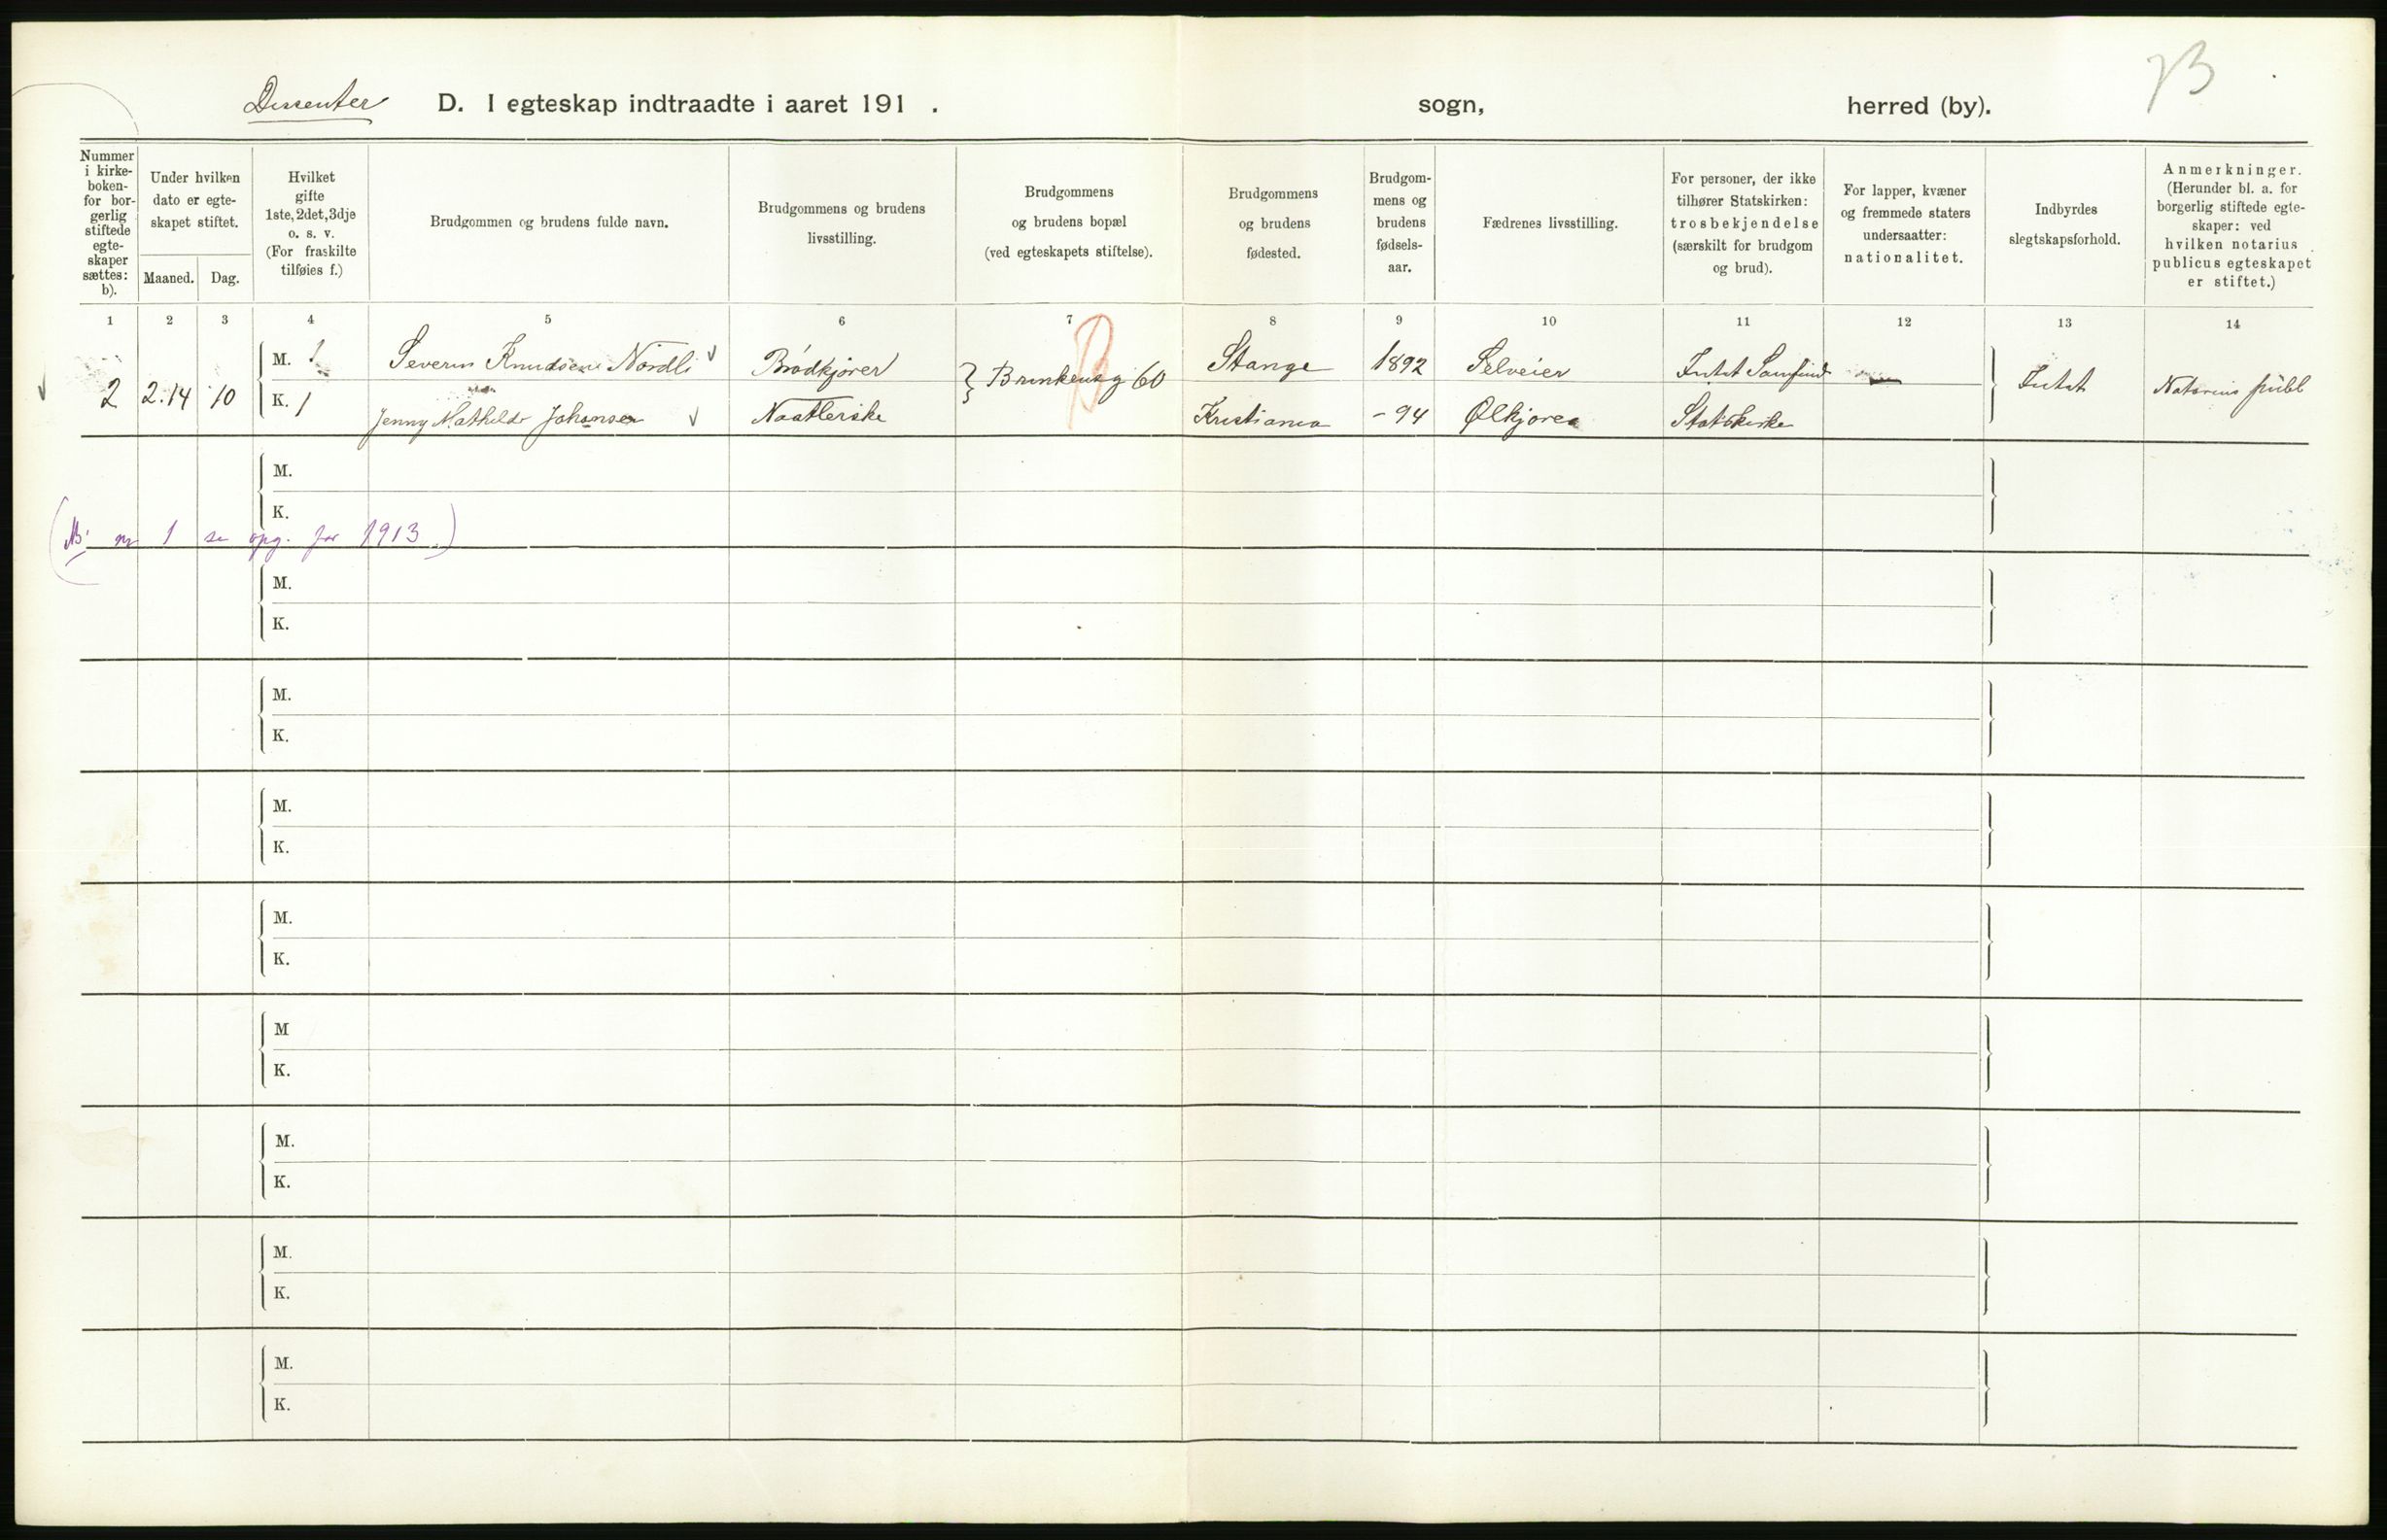 Dissenter D. I egteskap indtraadte i aaret 191 . sogn, herred (by).
Nummer
i kirke-
boken-
for bor-
gerlig
stiftede
egte-
skaper
sættes:
b).
Under hvilken
dato er egte-
skapet stiftet.
Maaned. Dag.
Hvilket
gifte
1ste, 2det, 3dje
o. s. v.
(For fraskilte
tilføies f.)
Brudgommen og brudens fulde navn.
Brudgommens og brudens
livsstilling.
Brudgommens
og brudens bopæl
(ved egteskapets stiftelse).
Brudgommens
og brudens
fødested.
Brudgom-
mens og
brudens
fødsels-
aar.
Fædrenes livsstilling.
For personer, der ikke
tilhører Statskirken:
trosbekjendelse
(særskilt for brudgom
og brud).
For lapper, kvæner
og fremmede staters
undersaatter:
nationalitet.
Indbyrdes
slegtskapsforhold.
Anmerkninger.
(Herunder bl. a. for
borgerlig stiftede egte-
skaper: ved
hvilken notarius
publicus egteskapet
er stiftet.)
1 2 3 4 5 6 7 8 9 10 11 12 13 14
M. 1 Severin Knudsen Nordli Brødkjører Stange 1892 Selveier Intet Samfund
2 2.14 10 Brinkensg 60 Intet Notarius publ
K. 1 Jenny Mathilde Johansen Naatlerske Kristiania - 94 Ølkjører Statskirke
M.
K.
nr 1 se opg. for 1913)
M.
K.
M.
K.
M.
K.
M.
K.
M
K.
M.
K.
M.
K.
M.
K.